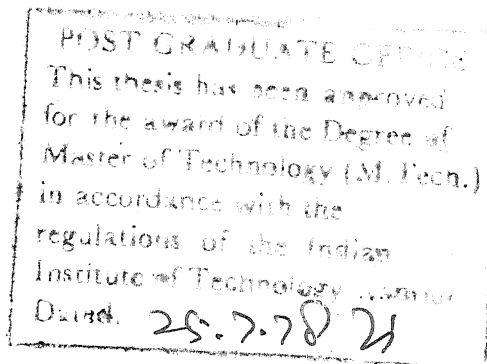 POST GRADUATE OFFICE
This thesis has been approved
for the award of the Degree of
Master of Technology (M.Tech.)
in accordance with the
regulations of the Indian
Institute of Technology Kanpur
Dated. 25.7.78